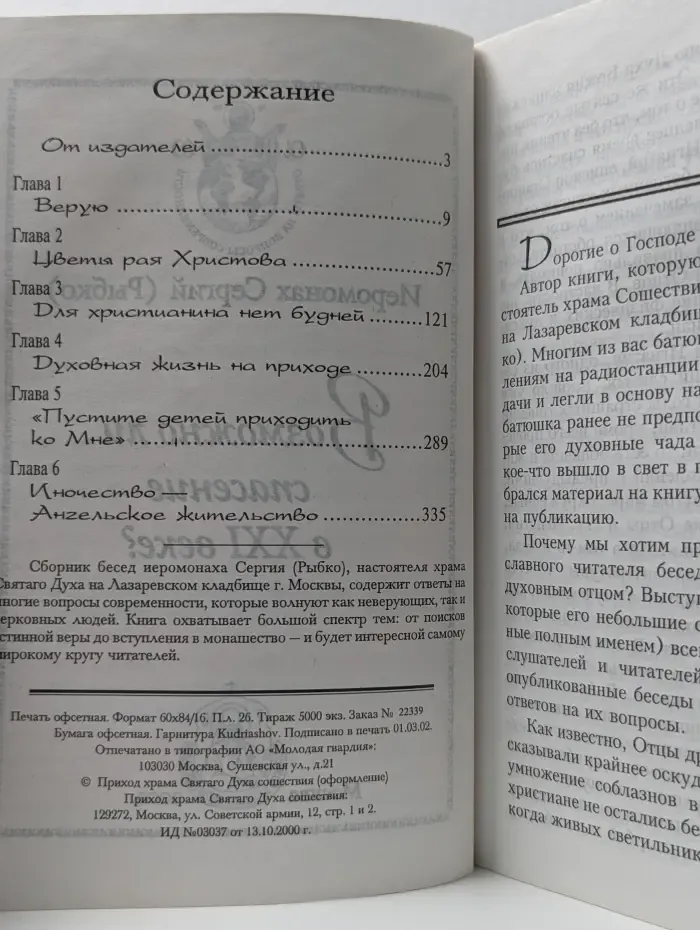 Содержание
От издателей ..................................3
Глава 1
Верую ...............................................9
Глава 2
Цветы рая Христова .....................57
Глава 3
Для христианина нет будней ........121
Глава 4
Духовная жизнь на приходе ............204
Глава 5
«Пустите детей приходить
ко Мне» ...........................................289
Глава 6
Иночество —
Ангельское жительство ................335
Сборник бесед иеромонаха Сергия (Рыбко), настоятеля храма
Святаго Духа на Лазаревском кладбище г. Москвы, содержит ответы на
многие вопросы современности, которые волнуют как неверующих, так и
церковных людей. Книга охватывает большой спектр тем: от поисков
истинной веры до вступления в монашество — и будет интересной самому
широкому кругу читателей.
Печать офсетная. Формат 60х84/16. П.л. 26. Тираж 5000 экз. Заказ № 22339
Бумага офсетная. Гарнитура Kudriashov. Подписано в печать 01.03.02.
Отпечатано в типографии АО «Молодая гвардия»:
103030 Москва, Сущевская ул., д.21
© Приход храма Святаго Духа сошествия (оформление)
Приход храма Святаго Духа сошествия:
129272, Москва, ул. Советской армии, 12, стр. 1 и 2.
ИД №03037 от 13.10.2000 г.
Дорогие о Господе
Автор книги, которую
стоятель храма Сошестви
на Лазаревском кладбищ
ко). Многим из вас батюш
лениям на радиостанции
дачи и легли в основу на
батюшка ранее не предпо
рые его духовные чада
кое-что вышло в свет в п
брался материал на книгу
на публикацию.
Почему мы хотим пр
славного читателя бесед
духовным отцом? Выступ
которые его небольшие с
ные полным именем) всег
слушателей и читателей
опубликованные беседы
ответов на их вопросы.
Как известно, Отцы др
сказывали крайнее оскуд
умножение соблазнов в
христиане не остались бе
когда живых светильник